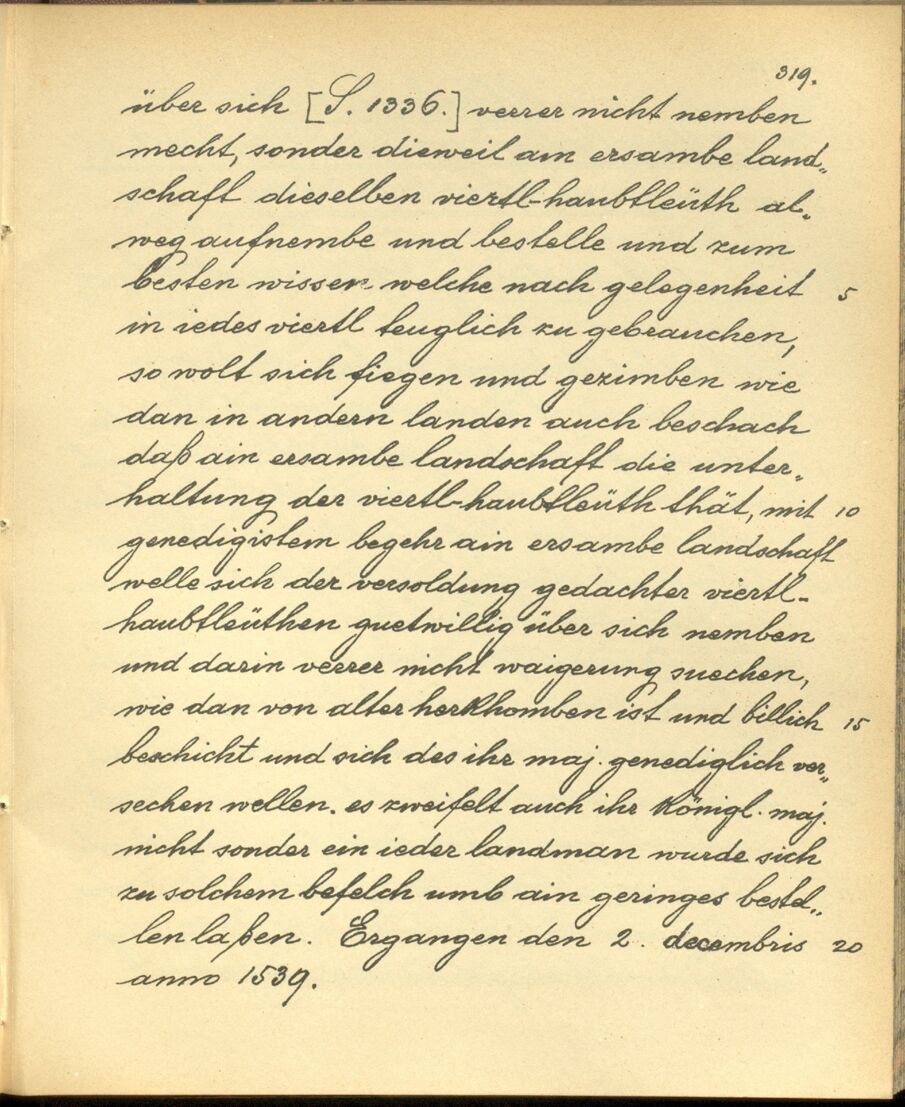 319.
über sich [S. 1336.] verrer nicht nemben
mecht, sonder dieweil am ersambe land„
schaft dieselben viertl-haubtleüth al„
weg aufnembe und bestelle und zum
besten wissen welche nach gelegenheit 5
in iedes viertl teuglich zu gebrauchen,
so wolt sich fiegen und gezimben wie
dan in andern landen auch beschach
daß ain ersambe landschaft die unter„
haltung der viertl-haubtleüth thät, mit 10
genedigistem begehr ain ersambe landschaft
welle sich der versoldung gedachter viertl-
haubtleüthen guetwillig über sich nemben
und darin veerer nicht waigerung suechen,
wie dan von alter herkhomben ist und billich 15
beschicht und sich des ihr maj. genediglich ver„
sechen wellen. es zweifelt auch ihr königl. maj.
nicht sonder ein ieder landman wurde sich
zu solchem befelch umb ain geringes bestel„
len laßen. Ergangen den 2. decembris 20
anno 1539.